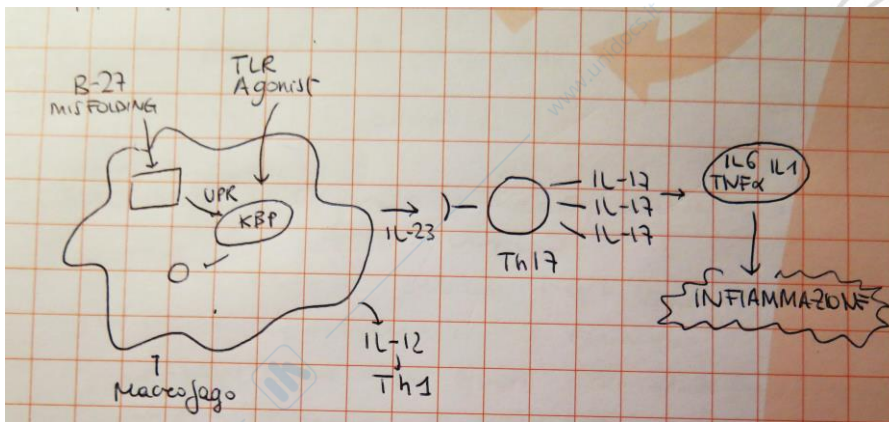 B-27
MISFOLDING
TLR
Agonist
UPR
KBP
IL-23
Th17
IL-17
IL-17
IL-17
IL6 IL1
TNFα
INFIAMMAZIONE
IL-12
Th1
Macrofago
www.unidocs.it